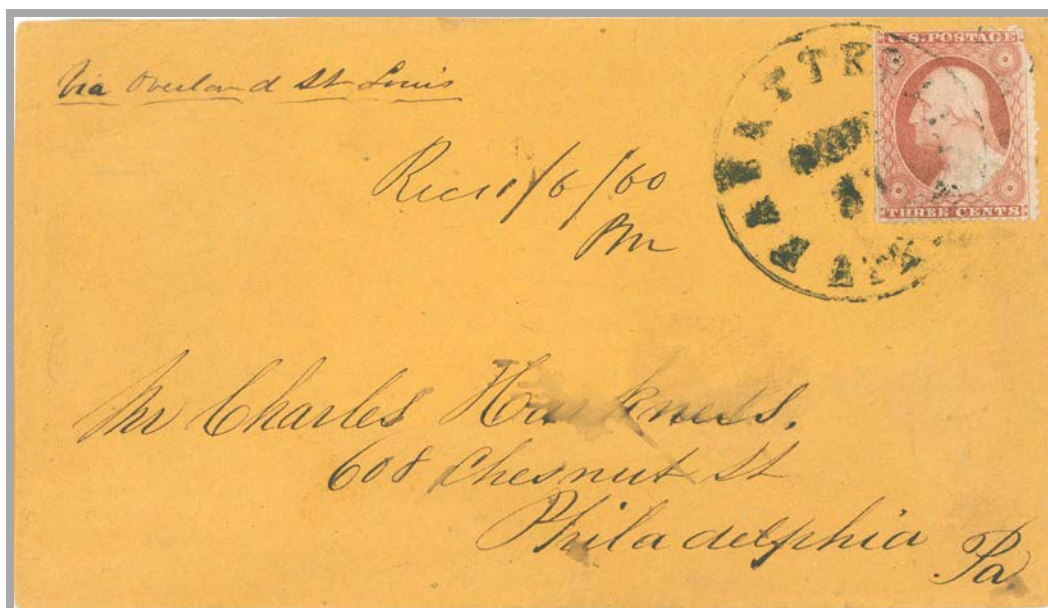 Via Overland St Louis
U.S. POSTAGE
THREE CENTS
Rec 11/6/60
Mr Charles Harkness.
608 Chesnut St
Philadelphia
Pa